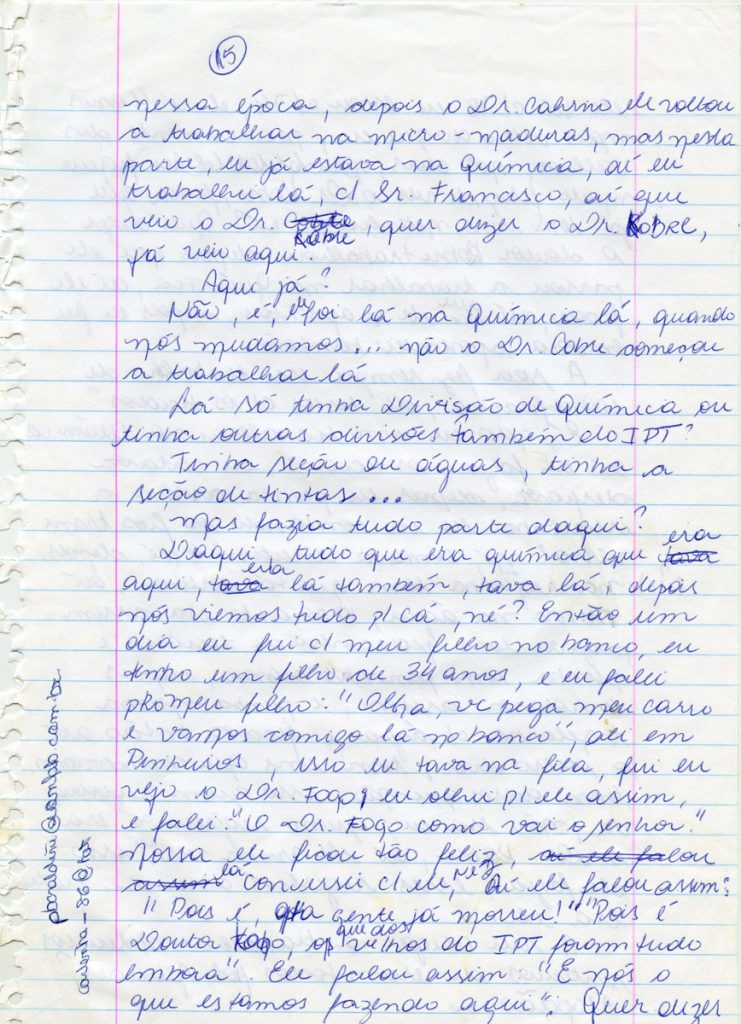 15
nessa época, depois o Dr. Cabrino ele voltou
a trabalhar na micro-maduras, mas nesta
parte, eu já estava na Química, aí eu
trabalhei lá, c/ Sr. Francisco, aí que
veio o Dr. Cobre Kobre, quer dizer o Dr. KOBRE,
já veio aqui.
Aqui já?
Não, é, foi lá na Química lá, quando
nós mudamos... não o Dr. Cobre começou
a trabalhar lá
Lá só tinha Divisão de Química ou
tinha outras divisões também do IPT?
Tinha seção de águas, tinha a
seção de tintas...
Mas fazia tudo parte daqui?
Daqui, tudo que era química que tava era
aqui, tava era lá também, tava lá, depois
nós viemos tudo p/ cá, né? Então um
dia eu fui c/ meu filho no banco, eu
tenho um filho de 34 anos, e eu falei
pro meu filho: "Olha, vc pega meu carro
e vamos comigo lá no banco", ali em
Pinheiros, isso eu tava na fila, fui eu
vejo o Dr. Fogo, eu olhei p/ ele assim,
e falei: "O Dr. Fogo como vai o senhor."
Nossa ele ficou tão feliz, aí ele falou
assim lá conversei c/ ele, né, Aí ele falou assim:
"Pois é, gente já morreu!" "Pois é
Doutor Fogo, os velhos do IPT foram tudo
embora". Ele falou assim: "E nós o
que estamos fazendo aqui". Quer dizer